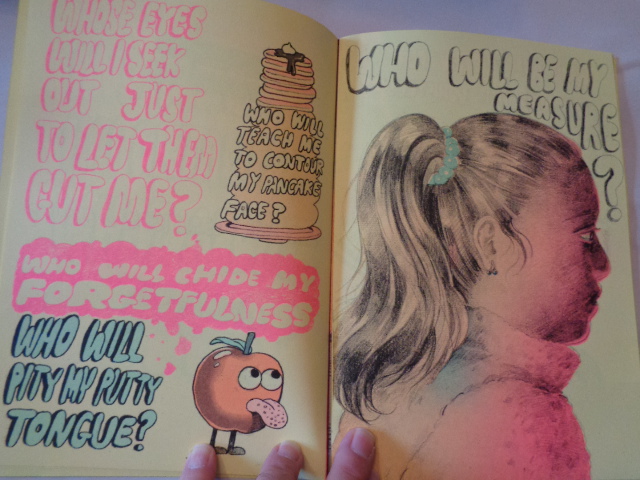 WHOSE EYES
WILL I SEEK
OUT JUST
TO LET THEM
CUT ME?
WHO WILL
TEACH ME
TO CONTOUR
MY PANCAKE
FACE?
WHO WILL CHIDE MY
FORGETFULNESS
WHO WILL
PITY MY PUTTY
TONGUE?
WHO WILL BE MY
MEASURE
?